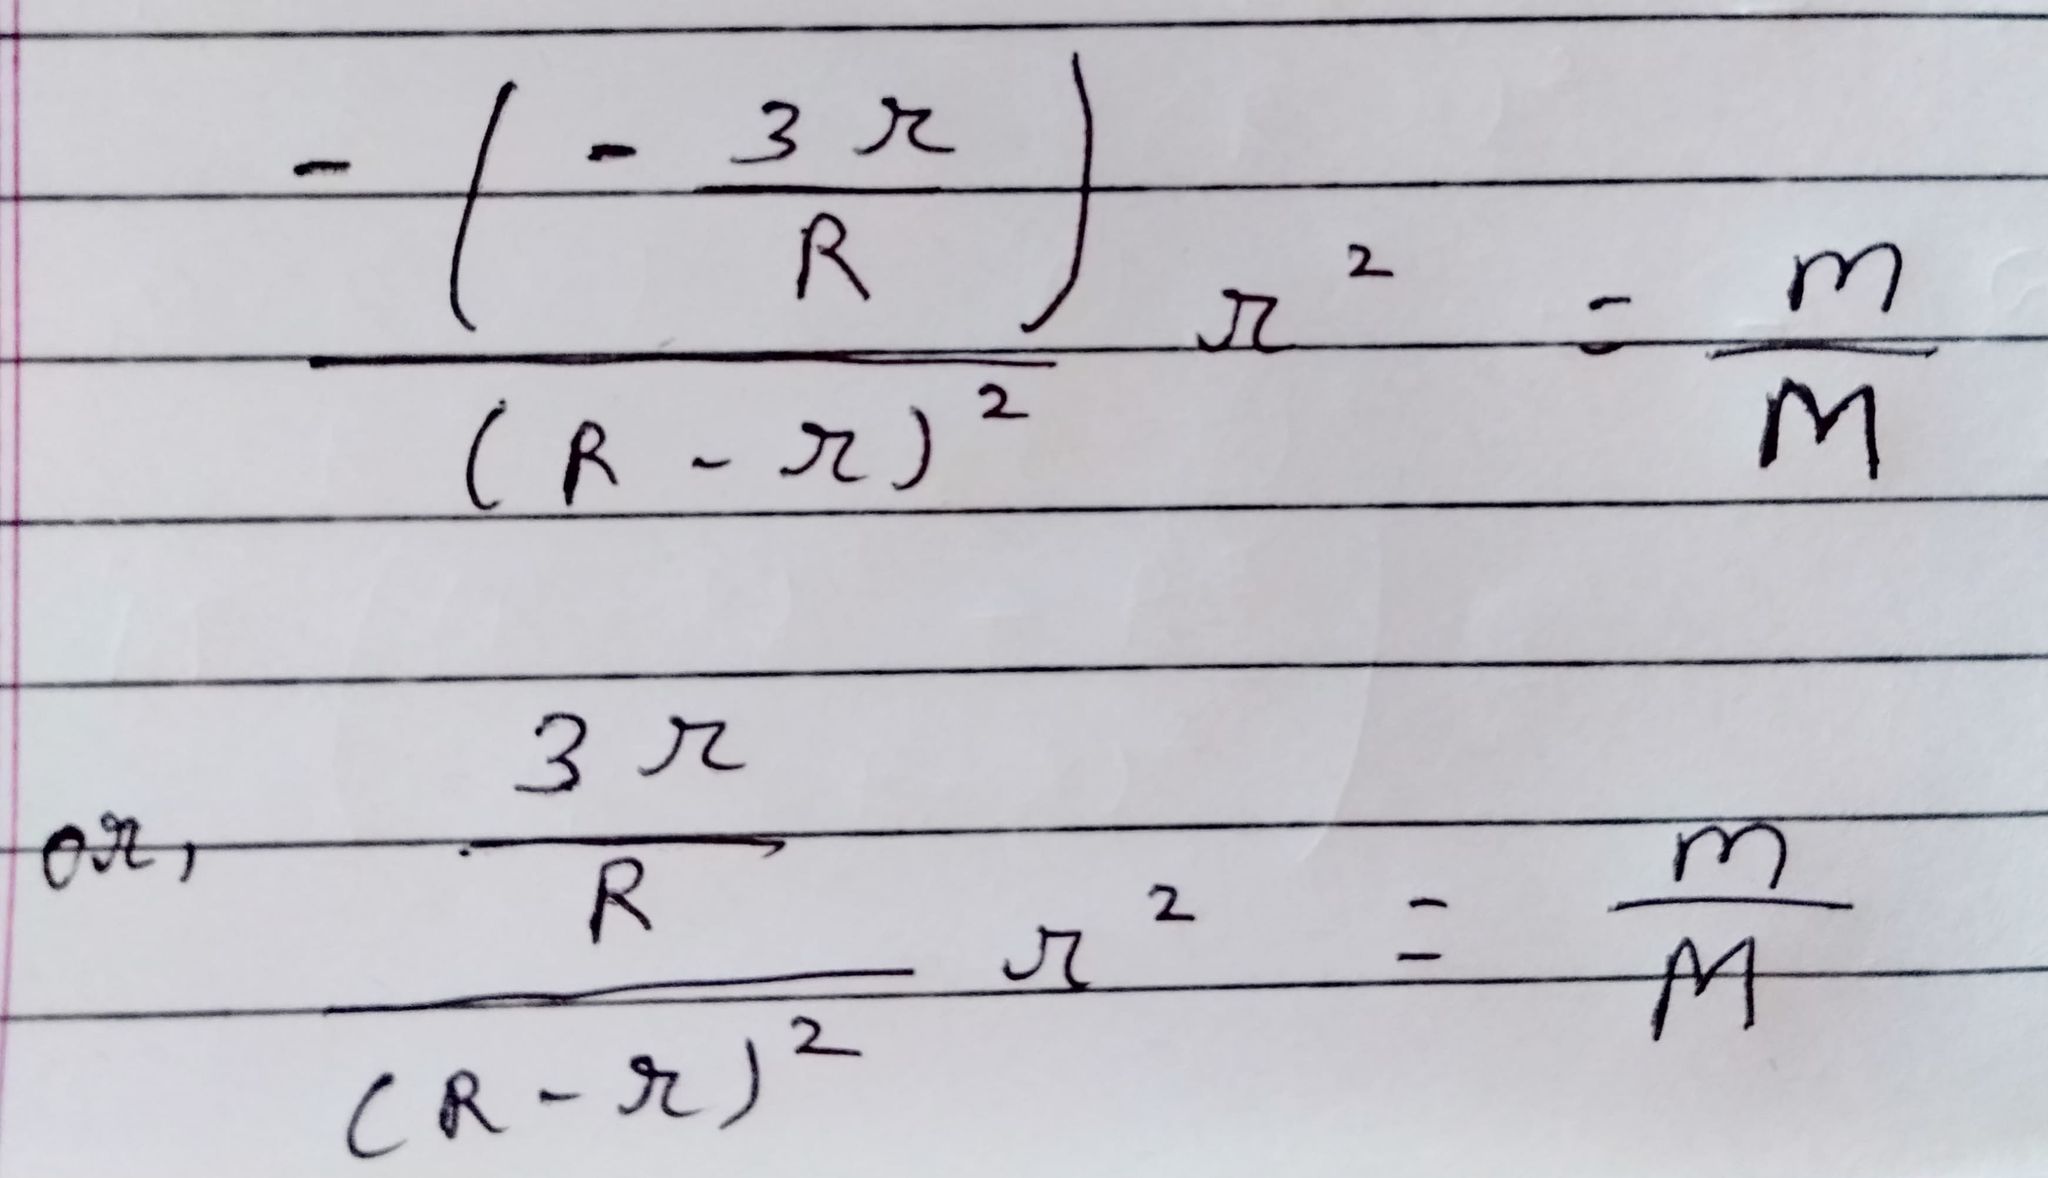 - ( - 3r/R ) / (R - r)² r² = m/M
or, 3r/R / (R - r)² r² = m/M